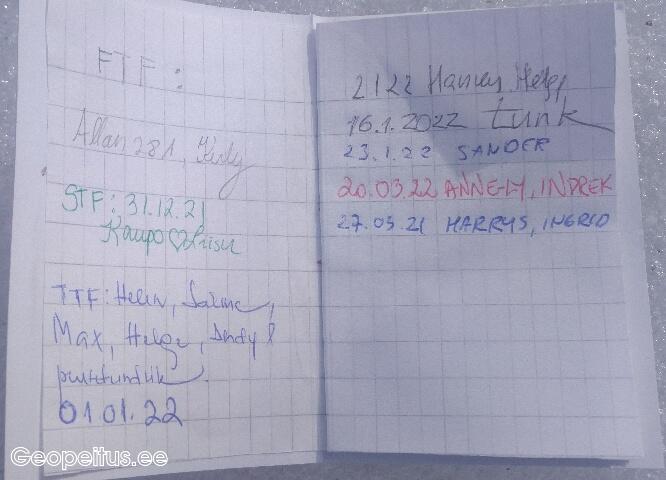 FTF:
Allan281, Kirly
STF:, 31.12.21
Kaupo♡Liisu
TTF: Helen, Saime,
Max, Helge, Andy &
01.01.22
2122 Hannes, Helg,
16.1.2022 tunk
23.1.22 SANDER
20.03.22 ANNE-LY, INDREK
27.05.21 HARRYS, INGRID
Geopeitus.ee